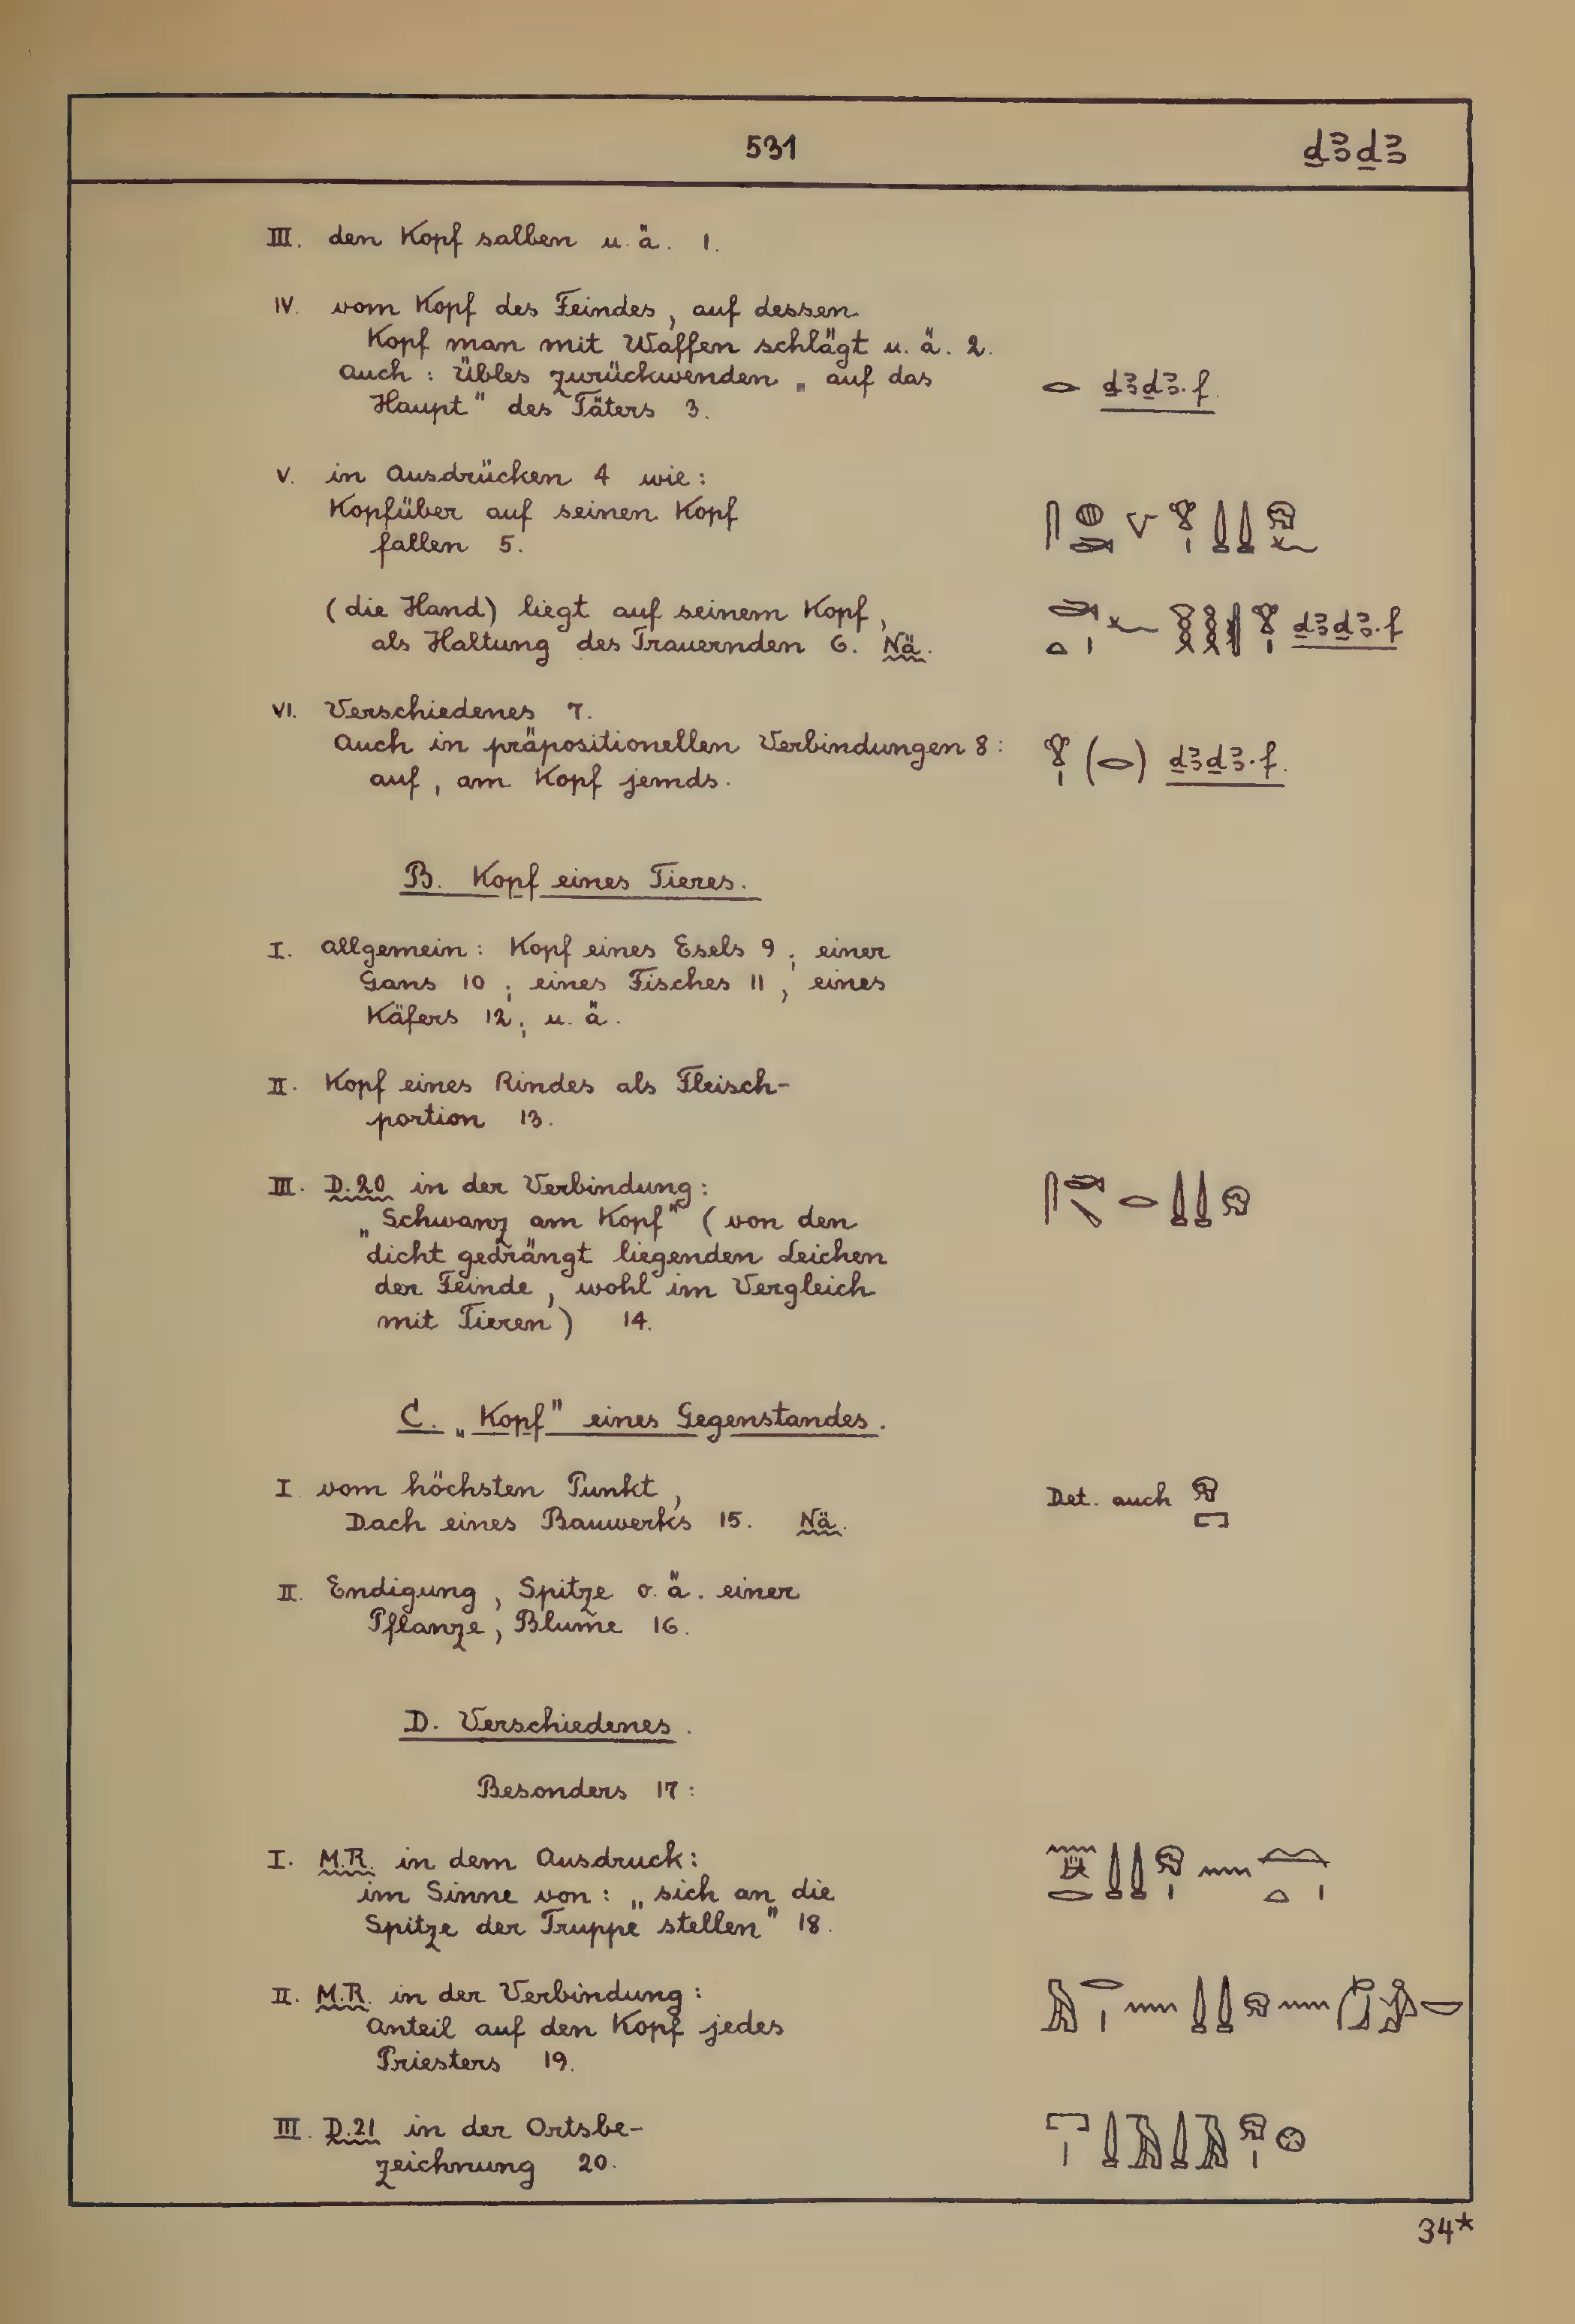 531 ḏꜣḏꜣ
III. den Kopf salben u. ä. 1.
IV. vom Kopf des Feindes, auf dessen
Kopf man mit Waffen schlägt u. ä. 2.
Auch: Übles zurückwenden „auf das
Haupt" des Täters 3. 𓂋 ḏꜣḏꜣ.f.
V. in Ausdrücken 4 wie:
Kopfüber auf seinen Kopf
fallen 5.
(die Hand) liegt auf seinem Kopf,
als Haltung des Trauernden 6. Nä. ḏꜣḏꜣ.f
VI. Verschiedenes 7.
Auch in präpositionellen Verbindungen 8:
auf, am Kopf jemds. 𓁷𓏤 (𓂋) ḏꜣḏꜣ.f.
B. Kopf eines Tieres.
I. Allgemein: Kopf eines Esels 9; einer
Gans 10; eines Fisches 11; eines
Käfers 12; u. ä.
II. Kopf eines Rindes als Fleisch-
portion 13.
III. D.20 in der Verbindung:
„Schwanz am Kopf" (von den
dicht gedrängt liegenden Leichen
der Feinde, wohl im Vergleich
mit Tieren) 14.
C. „Kopf" eines Gegenstandes.
I. vom höchsten Punkt,
Dach eines Bauwerks 15. Nä. Det. auch 𓁶𓉐
II. Endigung, Spitze o. ä. einer
Pflanze, Blume 16.
D. Verschiedenes.
Besonders 17:
I. M.R. in dem Ausdruck:
im Sinne von: „sich an die
Spitze der Truppe stellen" 18.
II. M.R. in der Verbindung:
Anteil auf den Kopf jedes
Priesters 19.
III. D.21 in der Ortsbe-
zeichnung 20. 𓉐𓏤𓍑𓄿𓍑𓄿𓁶𓏤𓊖
34*